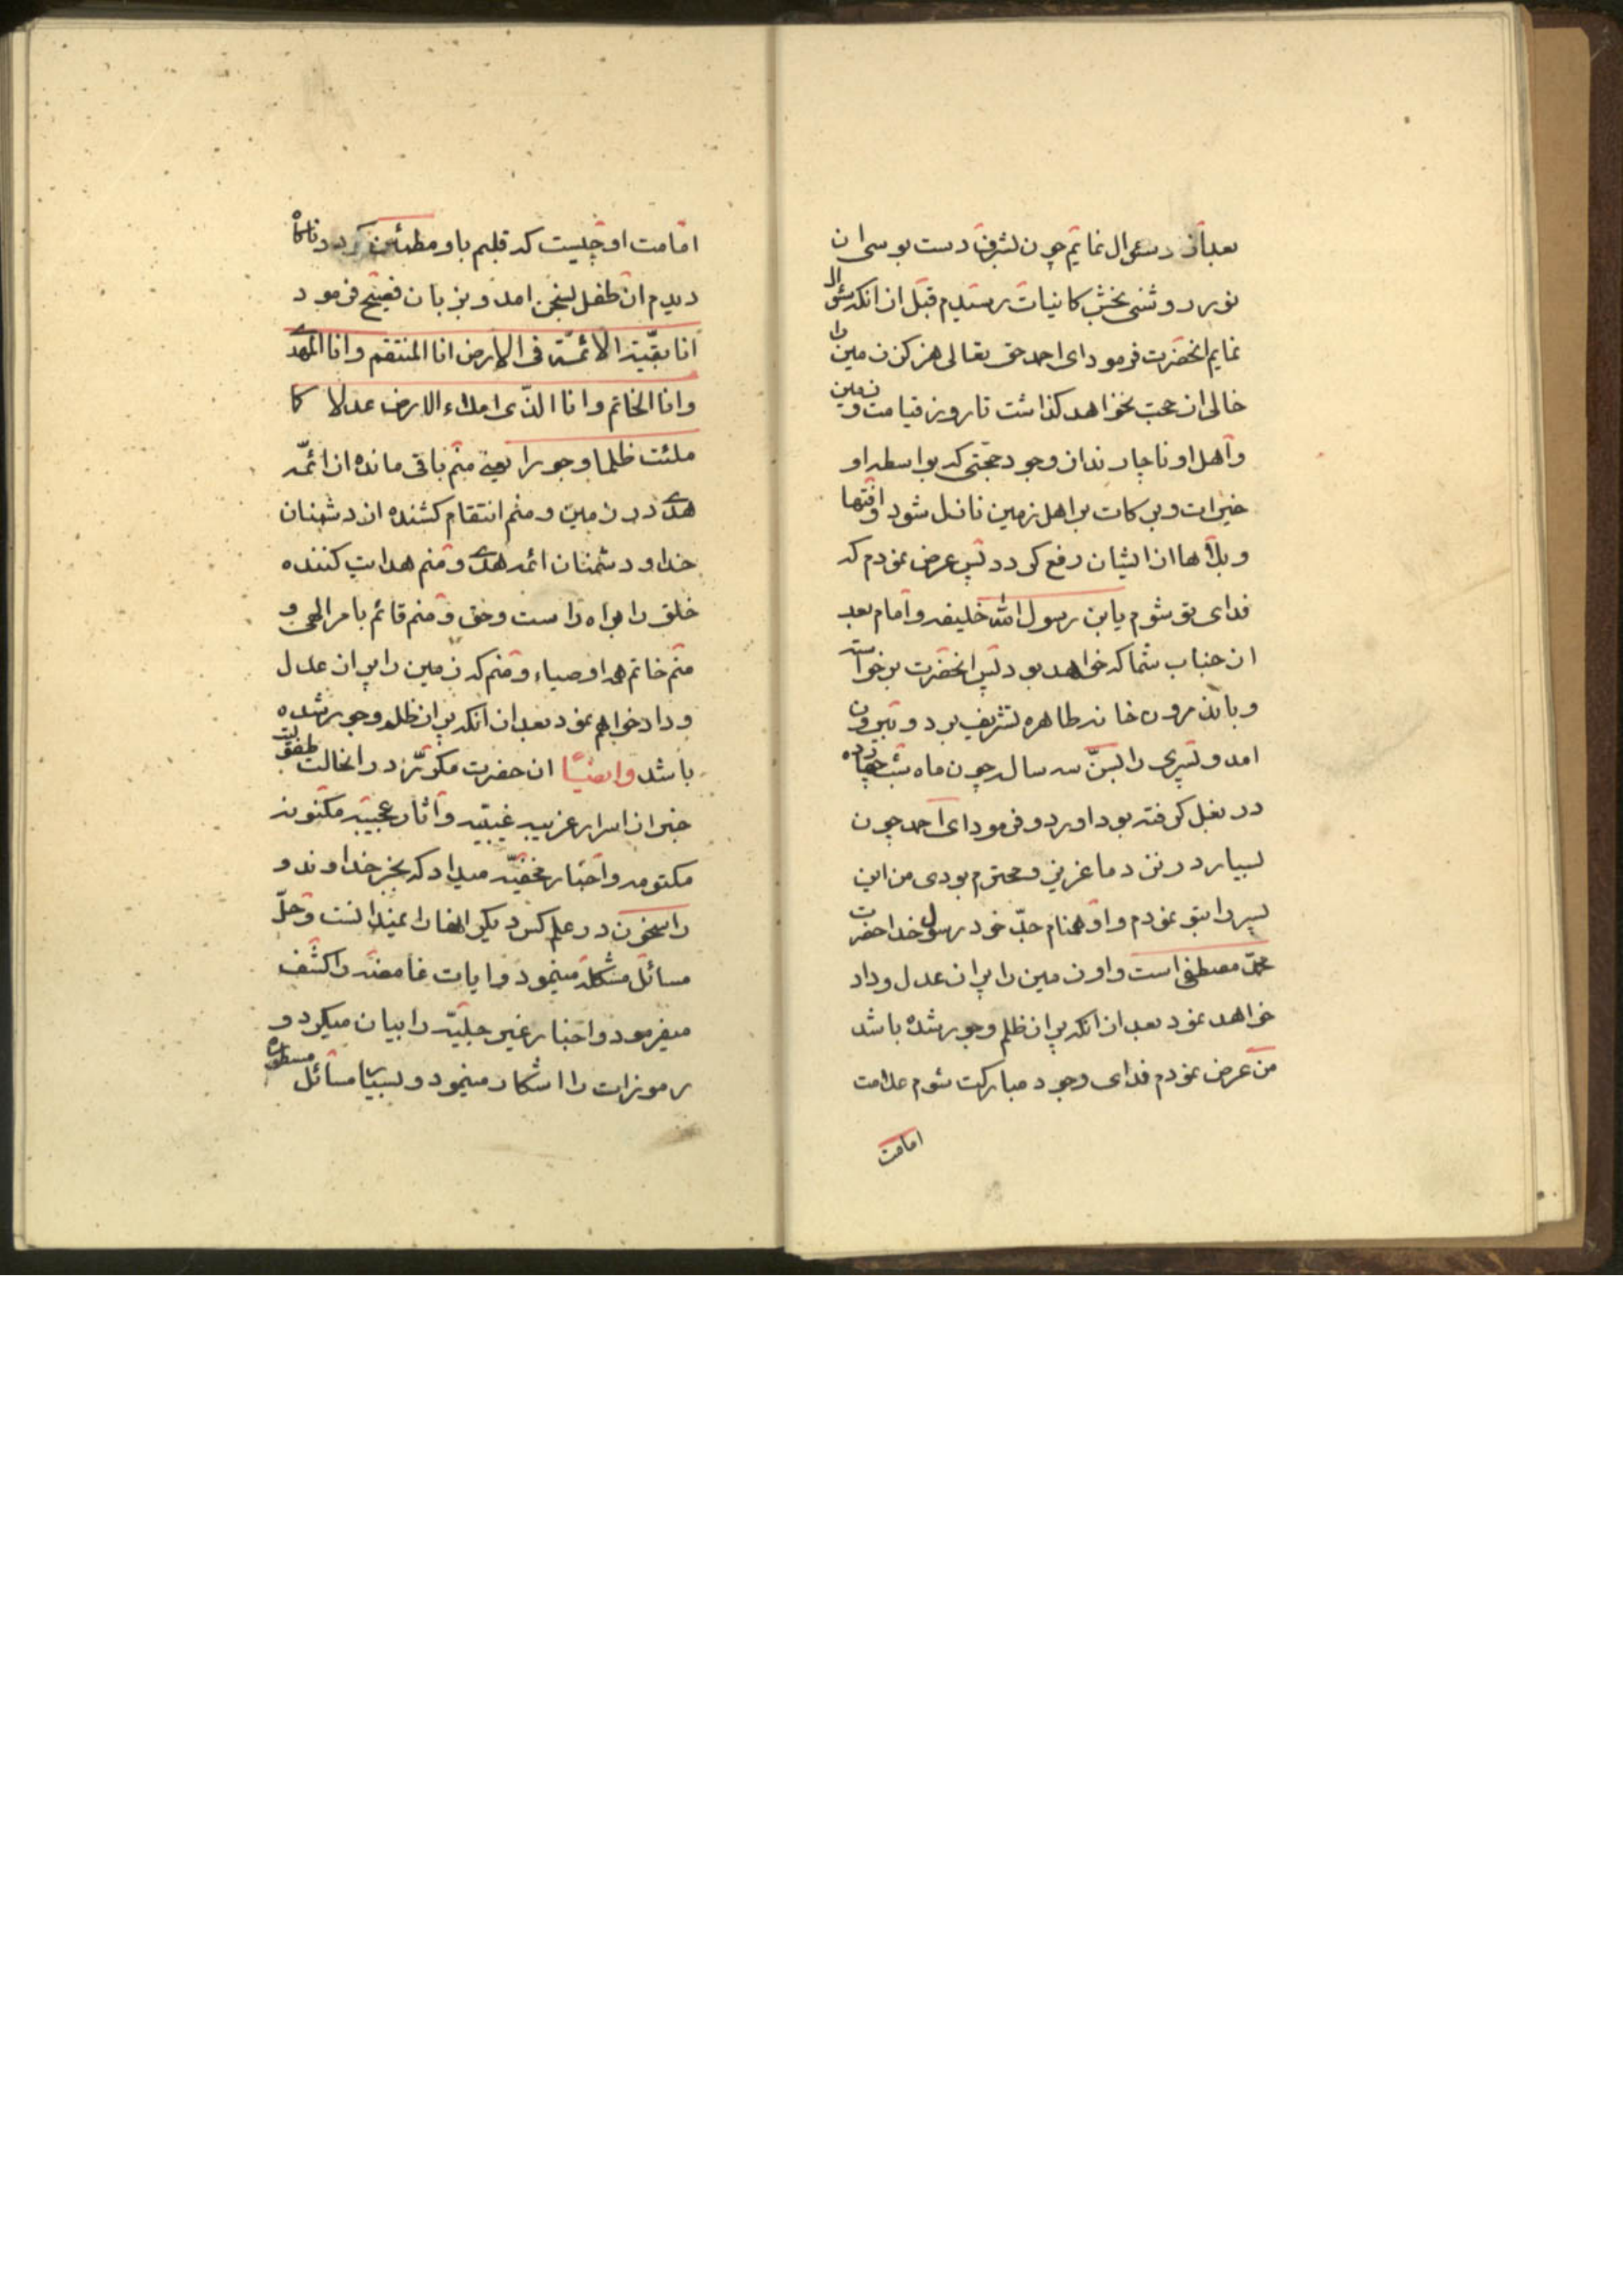 بعد از او سئوال نمایم چون بشرف دست بوسی ان
نور روشنی بخش کاینات رسیدم قبل از انکه سئوال
نمایم انحضرت فرمود ای احمد حق تعالی هرکز زمین را
خالی از حجت نخواهد کذاشت تا روز قیامت و زمین
و اهل او ناچارند از وجود حجتی که بواسطه او
خیرات و برکات بر اهل زمین نازل شود و افتها
و بلاها از ایشان رفع کردد پس عرض نمودم که
فدای تو شوم یابن رسول الله خلیفه و امام بعد
از جناب شما که خواهد بود پس انحضرت برخواسته
و باندرون خانه طاهره تشریف برد و بیرون
امد و پسری را بسنّ سه سال چون ماه شب چهارده
در بغل کرفته بود اورد و فرمود ای احمد چون
بسیار در نزد ما عزیز و محترم بودی من این
پسر را بتو نمودم و او همنام جدّ خود رسول خدا حضرت
محمّد مصطفی است و او زمین را پر از عدل و داد
خواهد نمود بعد از انکه پر از ظلم و جور شده باشد
من عرض نمودم فدای وجود مبارکت شوم علامت
امامت
امامت او چیست که قلبم باو مطمئن کردد ناکاه
دیدم ان طفل بسخن امد و بزبان فصیح فرمود
انا بقیّة الائمّة فی الارض انا المنتقم و انا المهدی
و انا الخاتم و انا الذّی املاء الارض عدلا کما
ملئت ظلما و جورا یعنی منم باقی مانده از ائمّه
هدی در زمین و منم انتقام کشنده از دشمنان
خدا و دشمنان ائمه هدی و منم هدایت کننده
خلق را براه راست و حق و منم قائم بامر الهی و
منم خاتم همه اوصیاء و منم که زمین را پر از عدل
و داد خواهم نمود بعد از انکه پر از ظلم و جور شده
باشد وایضًا ان حضرت مکرّر در انحالت طفولیت
خبر از اسرار غریبه غیبیّه و اثار عجیبه مکنونه
مکتومه و اخبار مخفیّه میداد که بجز خداوند و
راسخون در علم کس دیکر انها را نمیدانست و حلّ
مسائل مشکله مینمود و ایات غامضه را کشف
میفرمود و اخبار غیر جلیّه را بیان میکرد و
رموزات را اشکار مینمود و بسیار مسائل مسطوره